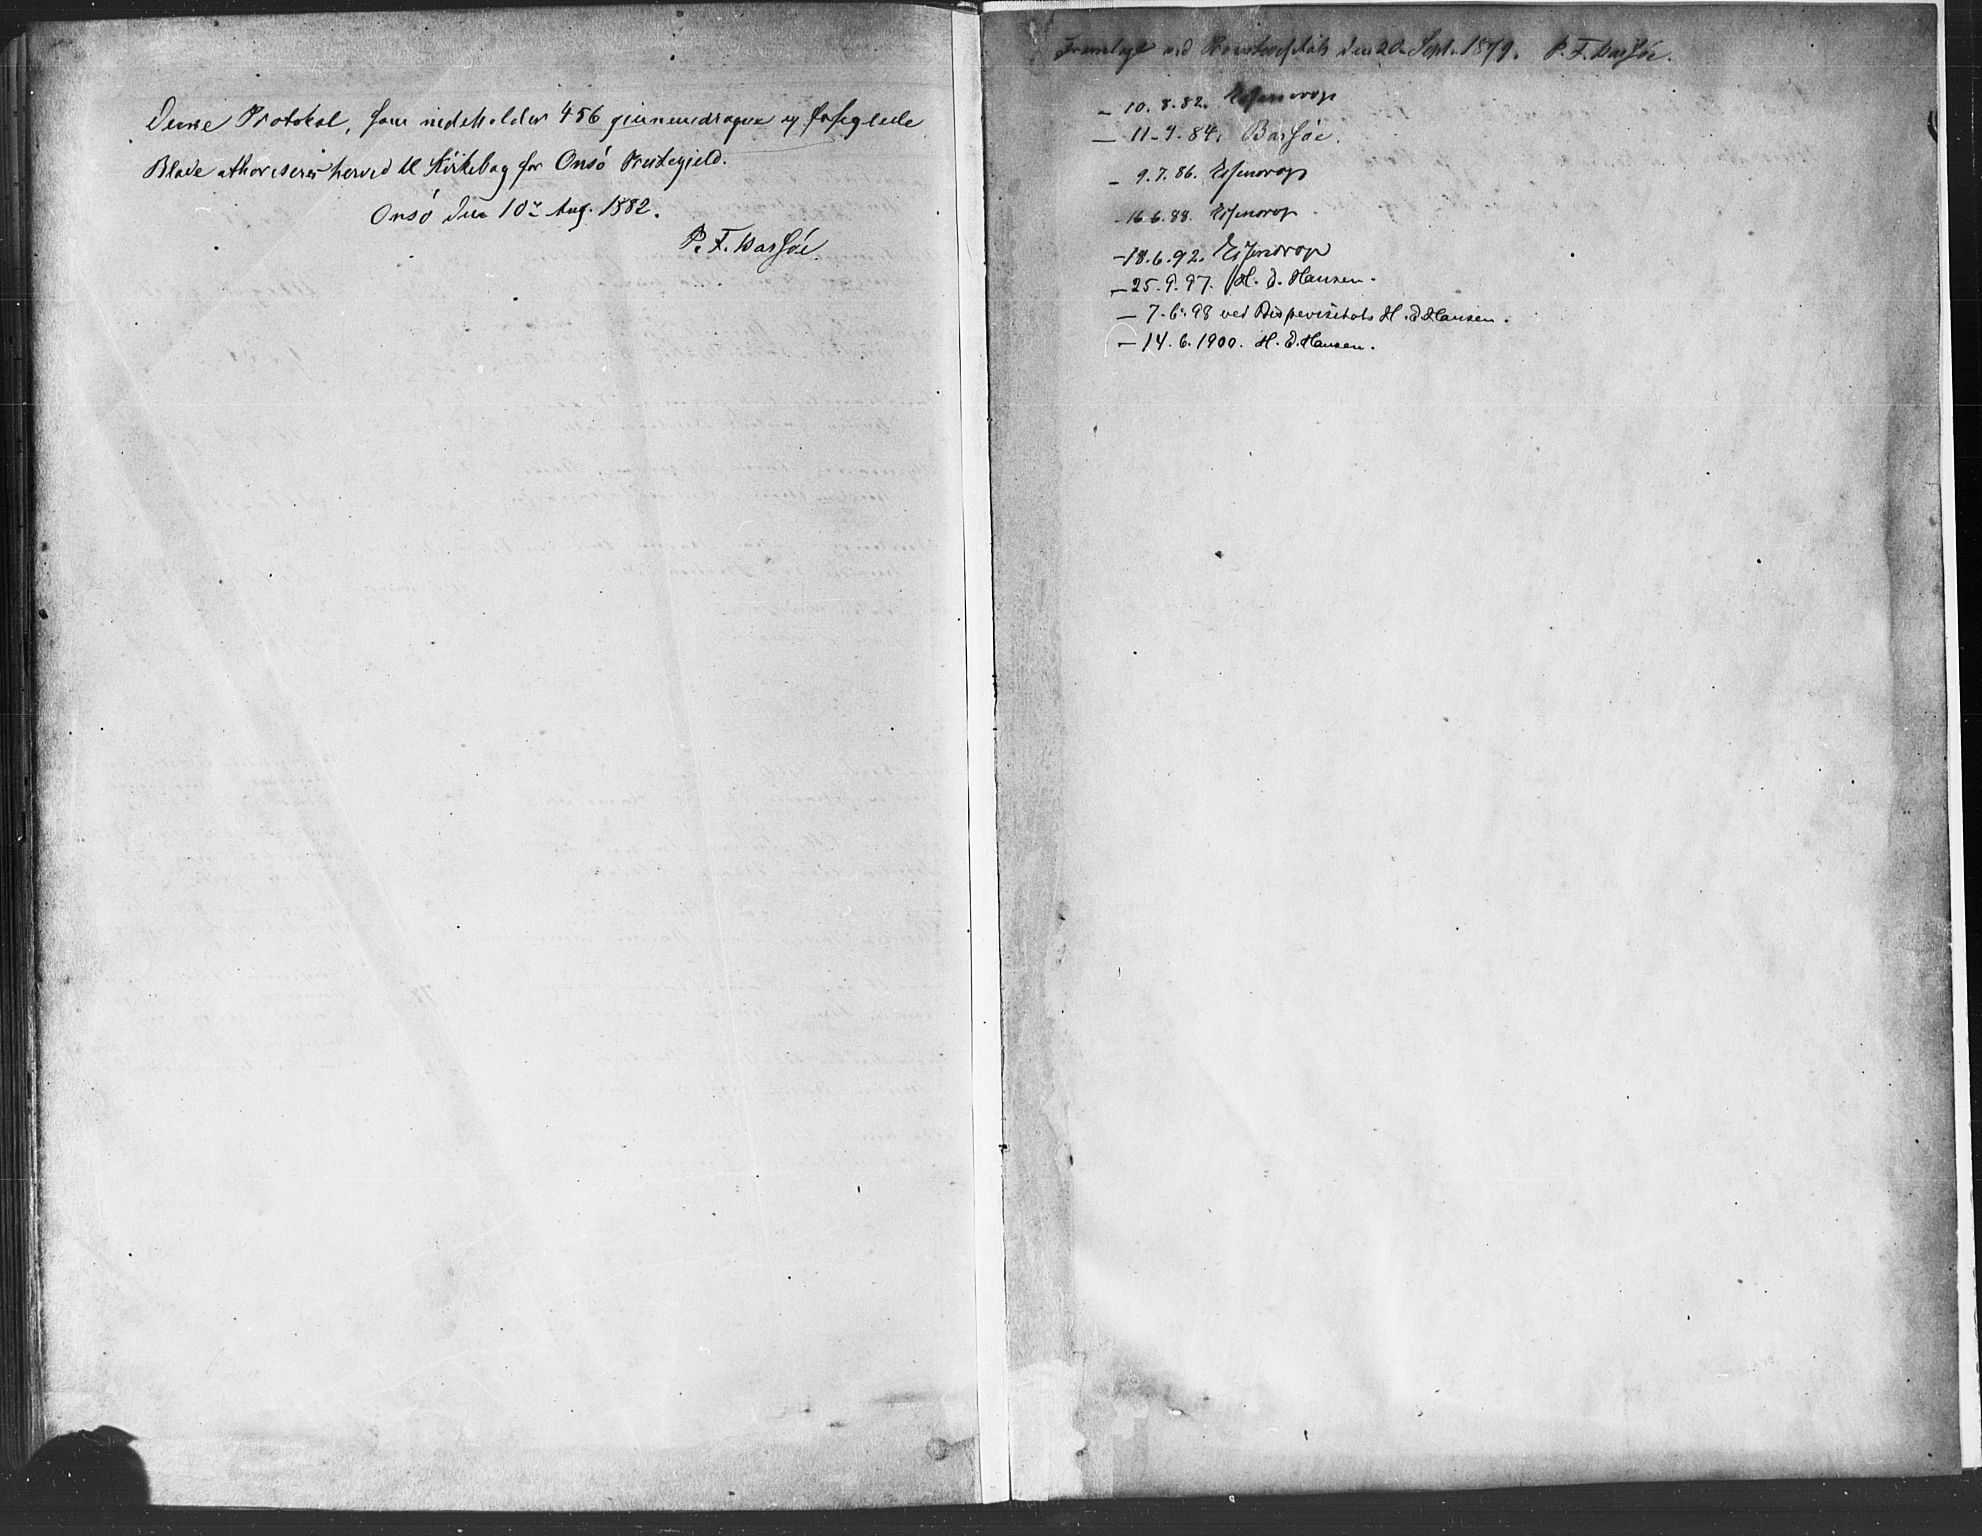 Denne Protokol, som indeholder 456 gjennemdragne og forseglede
Blade athoriseres herved til Kirkebog for Onsö Prestegjeld.
Onsö den 10de Aug. 1882.
P. F. Bassöe
Fremlagt ved Provstevisitats den 20. Sept. 1879. P. F. Bassöe.
- 10. 8. 82.
- 11-9. 84. Bassöe.
- 9. 7. 86.
- 16 6. 88.
- 18. 6. 92.
- 25. 9. 97. H. d. Hansen.
- 7. 6. 98 ved Bispevisitats H. d Hansen.
- 14. 6. 1900. H. d. Hansen.